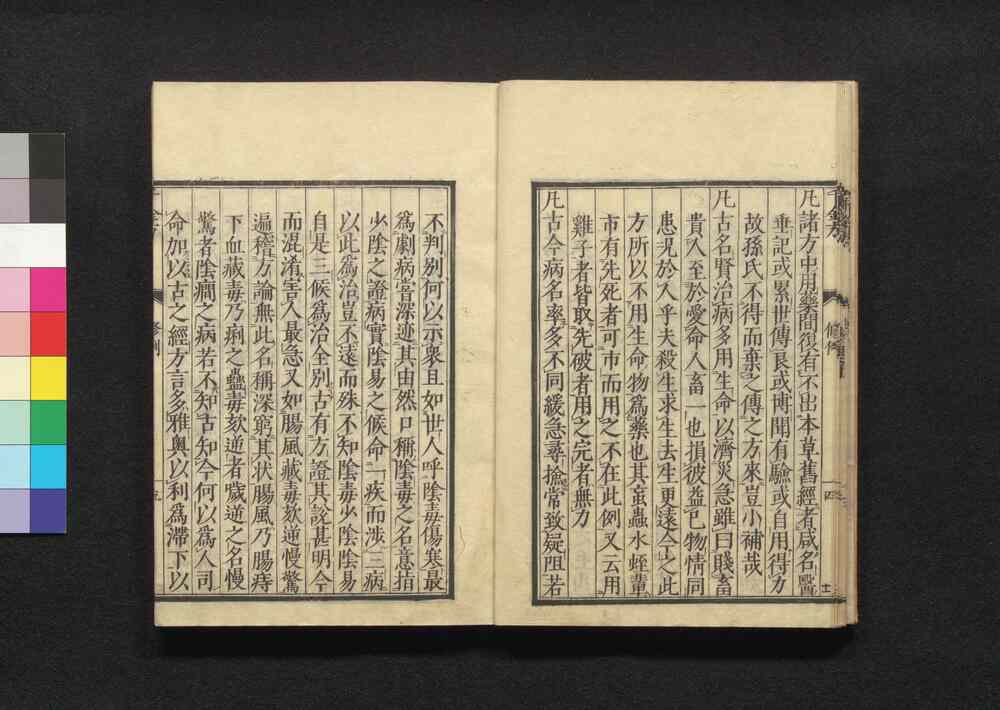 凡諸方中用藥間復有不出本草舊經者咸名醫
垂記或累世傳良或博聞有驗或自用得力
故孫氏不得而棄之傳之方來豈小補哉
凡古名賢治病多用生命以濟災急雖曰賤畜
貴人至於愛命人畜一也損彼益己物情同
患況於人乎夫殺生求生去生更遠今之此
方所以不用生命物爲藥也其䖟蟲水蛭輩
市有先死者可市而用之不在此例又云用
雞子者皆取先破者用之完者無力
凡古今病名率多不同緩急尋檢常致疑阻若
不判別何以示衆且如世人呼陰毒傷寒最
爲劇病嘗深迹其由然口稱陰毒之名意指
少陰之證病實陰易之候命一疾而涉三病
以此爲治豈不遠而殊不知陰毒少陰陰易
自是三候爲治全別古有方證其說甚明今
而混淆害人最急又如腸風藏毒欬逆慢驚
遍稽方論無此名稱深窮其狀腸風乃腸痔
下血藏毒乃痢之蠱毒欬逆者噦逆之名慢
驚者陰癎之病若不知古知今何以爲人司
命加以古之經方言多雅奧以利爲滯下以